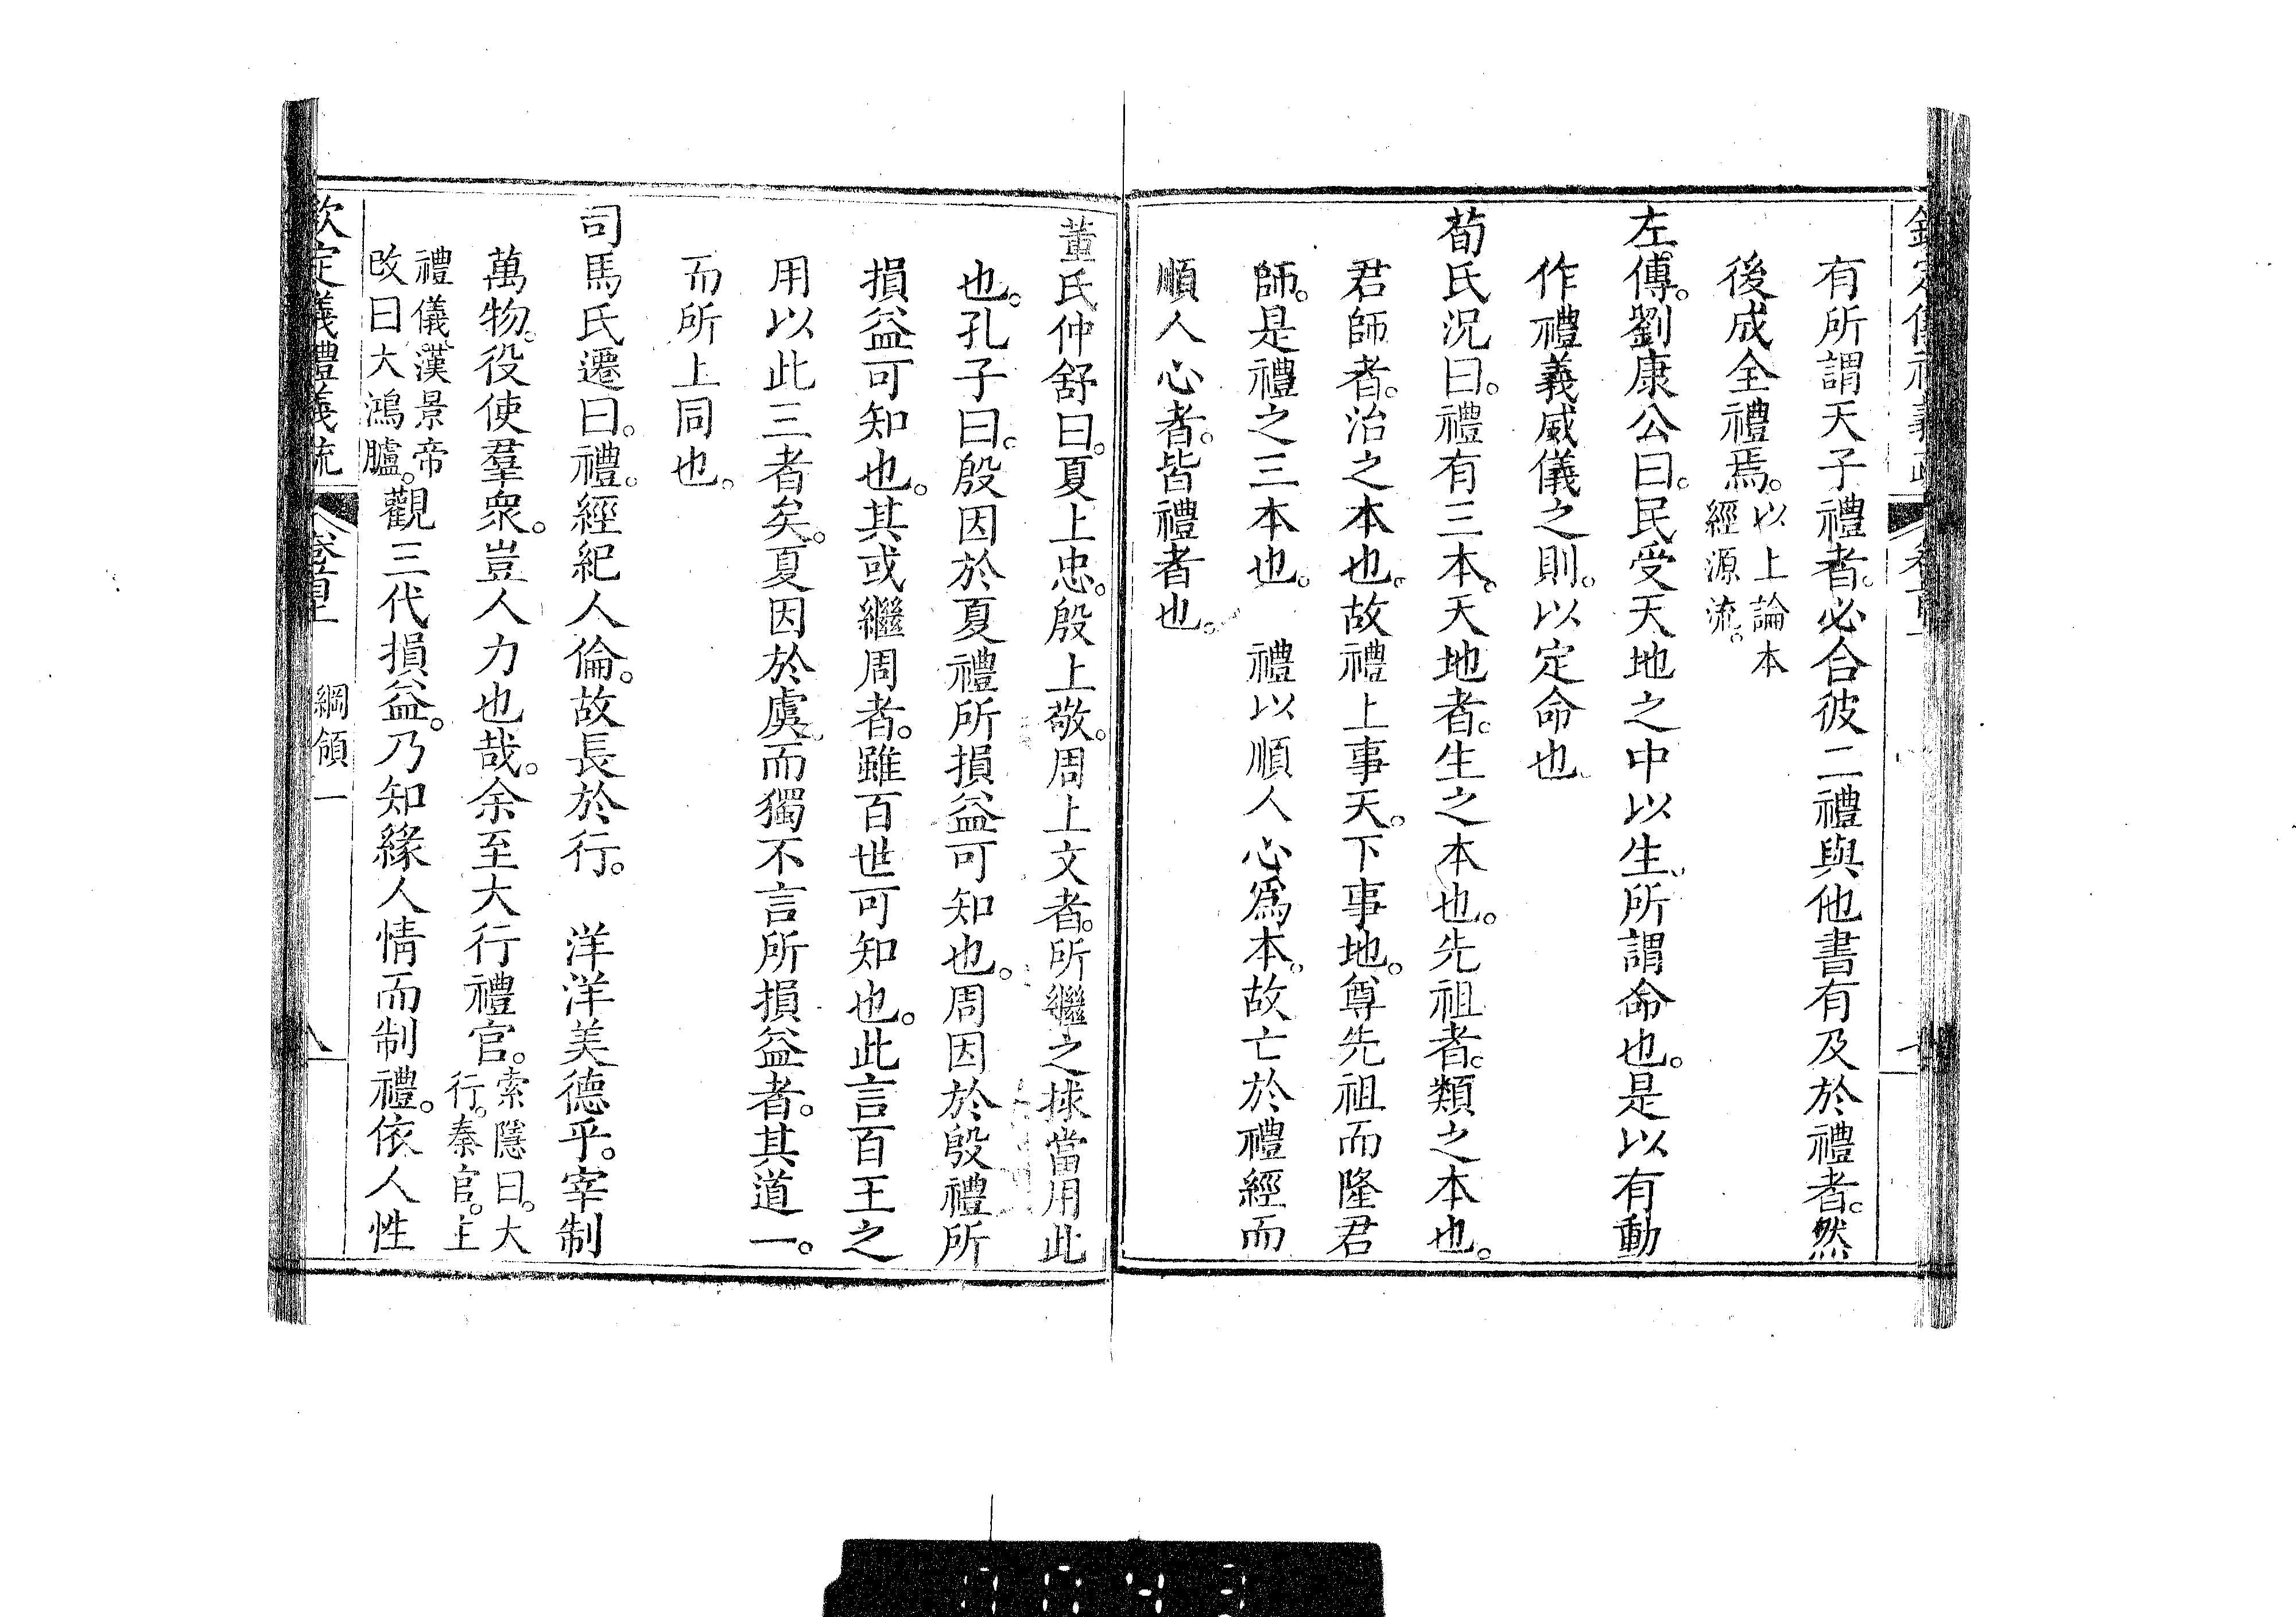 有所謂天子禮者。必合彼二禮與他書有及於禮者。然
後成全禮焉。以上論本經源流。
左傳。劉康公曰。民受天地之中以生。所謂命也。是以有動
作禮義威儀之則。以定命也。
荀氏況曰。禮有三本。天地者。生之本也。先祖者。類之本也。
君師者。治之本也。故禮上事天。下事地。尊先祖而隆君
師。是禮之三本也。　禮以順人心爲本。故亡於禮經而
順人心者。皆禮者也。
董氏仲舒曰。夏上忠。殷上敬。周上文者。所繼之捄當用此
也。孔子曰。殷因於夏禮所損益可知也。周因於殷禮所
損益可知也。其或繼周者。雖百世可知也。此言百王之
用以此三者矣。夏因於虞。而獨不言所損益者。其道一。
而所上同也。
司馬氏遷曰。禮。經紀人倫。故長於行。　洋洋美德乎。宰制
萬物。役使羣衆。豈人力也哉。余至大行禮官。索隱曰。大行。秦官。主
禮儀。漢景帝改曰大鴻臚。觀三代損益。乃知緣人情而制禮。依人性
欽定儀禮義疏
卷首上
綱領一
八